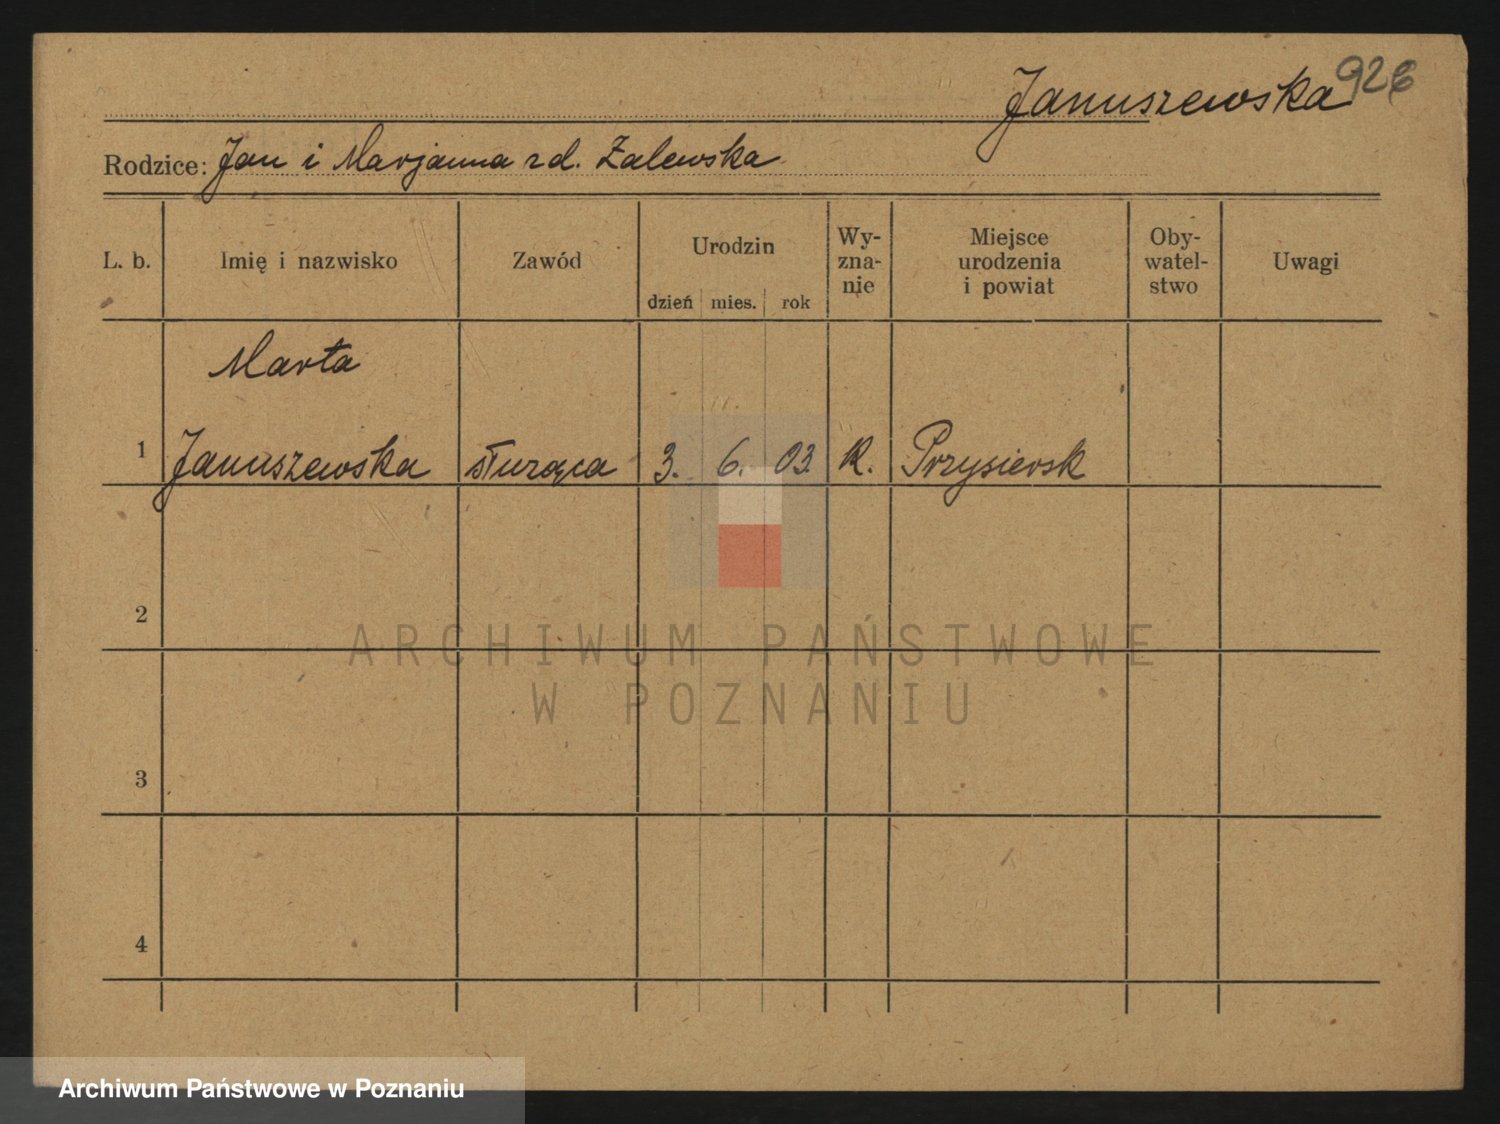 Januszewska 926
Rodzice: Jan i Marjanna zd. Zalewska
L. b.
Imię i nazwisko
Zawód
Urodzin
dzień mies. rok
Wy-
zna-
nie
Miejsce
urodzenia
i powiat
Oby-
watel-
stwo
Uwagi
Marta
1 Januszewska służąca 3. 6. 03. k. Przysiersk
2
ARCHIWUM PAŃSTWOWE
W POZNANIU
3
4
Archiwum Państwowe w Poznaniu